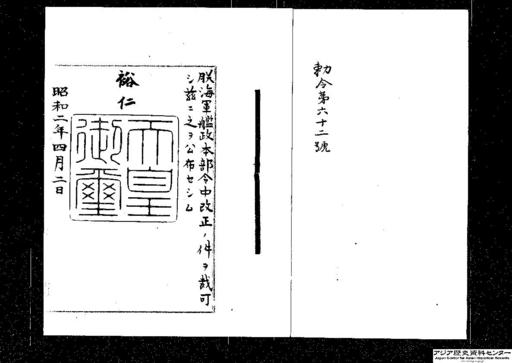 勅令第六十二號
朕海軍艦政本部令中改正ノ件ヲ裁可
シ茲ニ之ヲ公布セシム
裕仁
天皇御璽
昭和二年四月二日
アジア歴史資料センター
Japan Center for Asian Historical Records